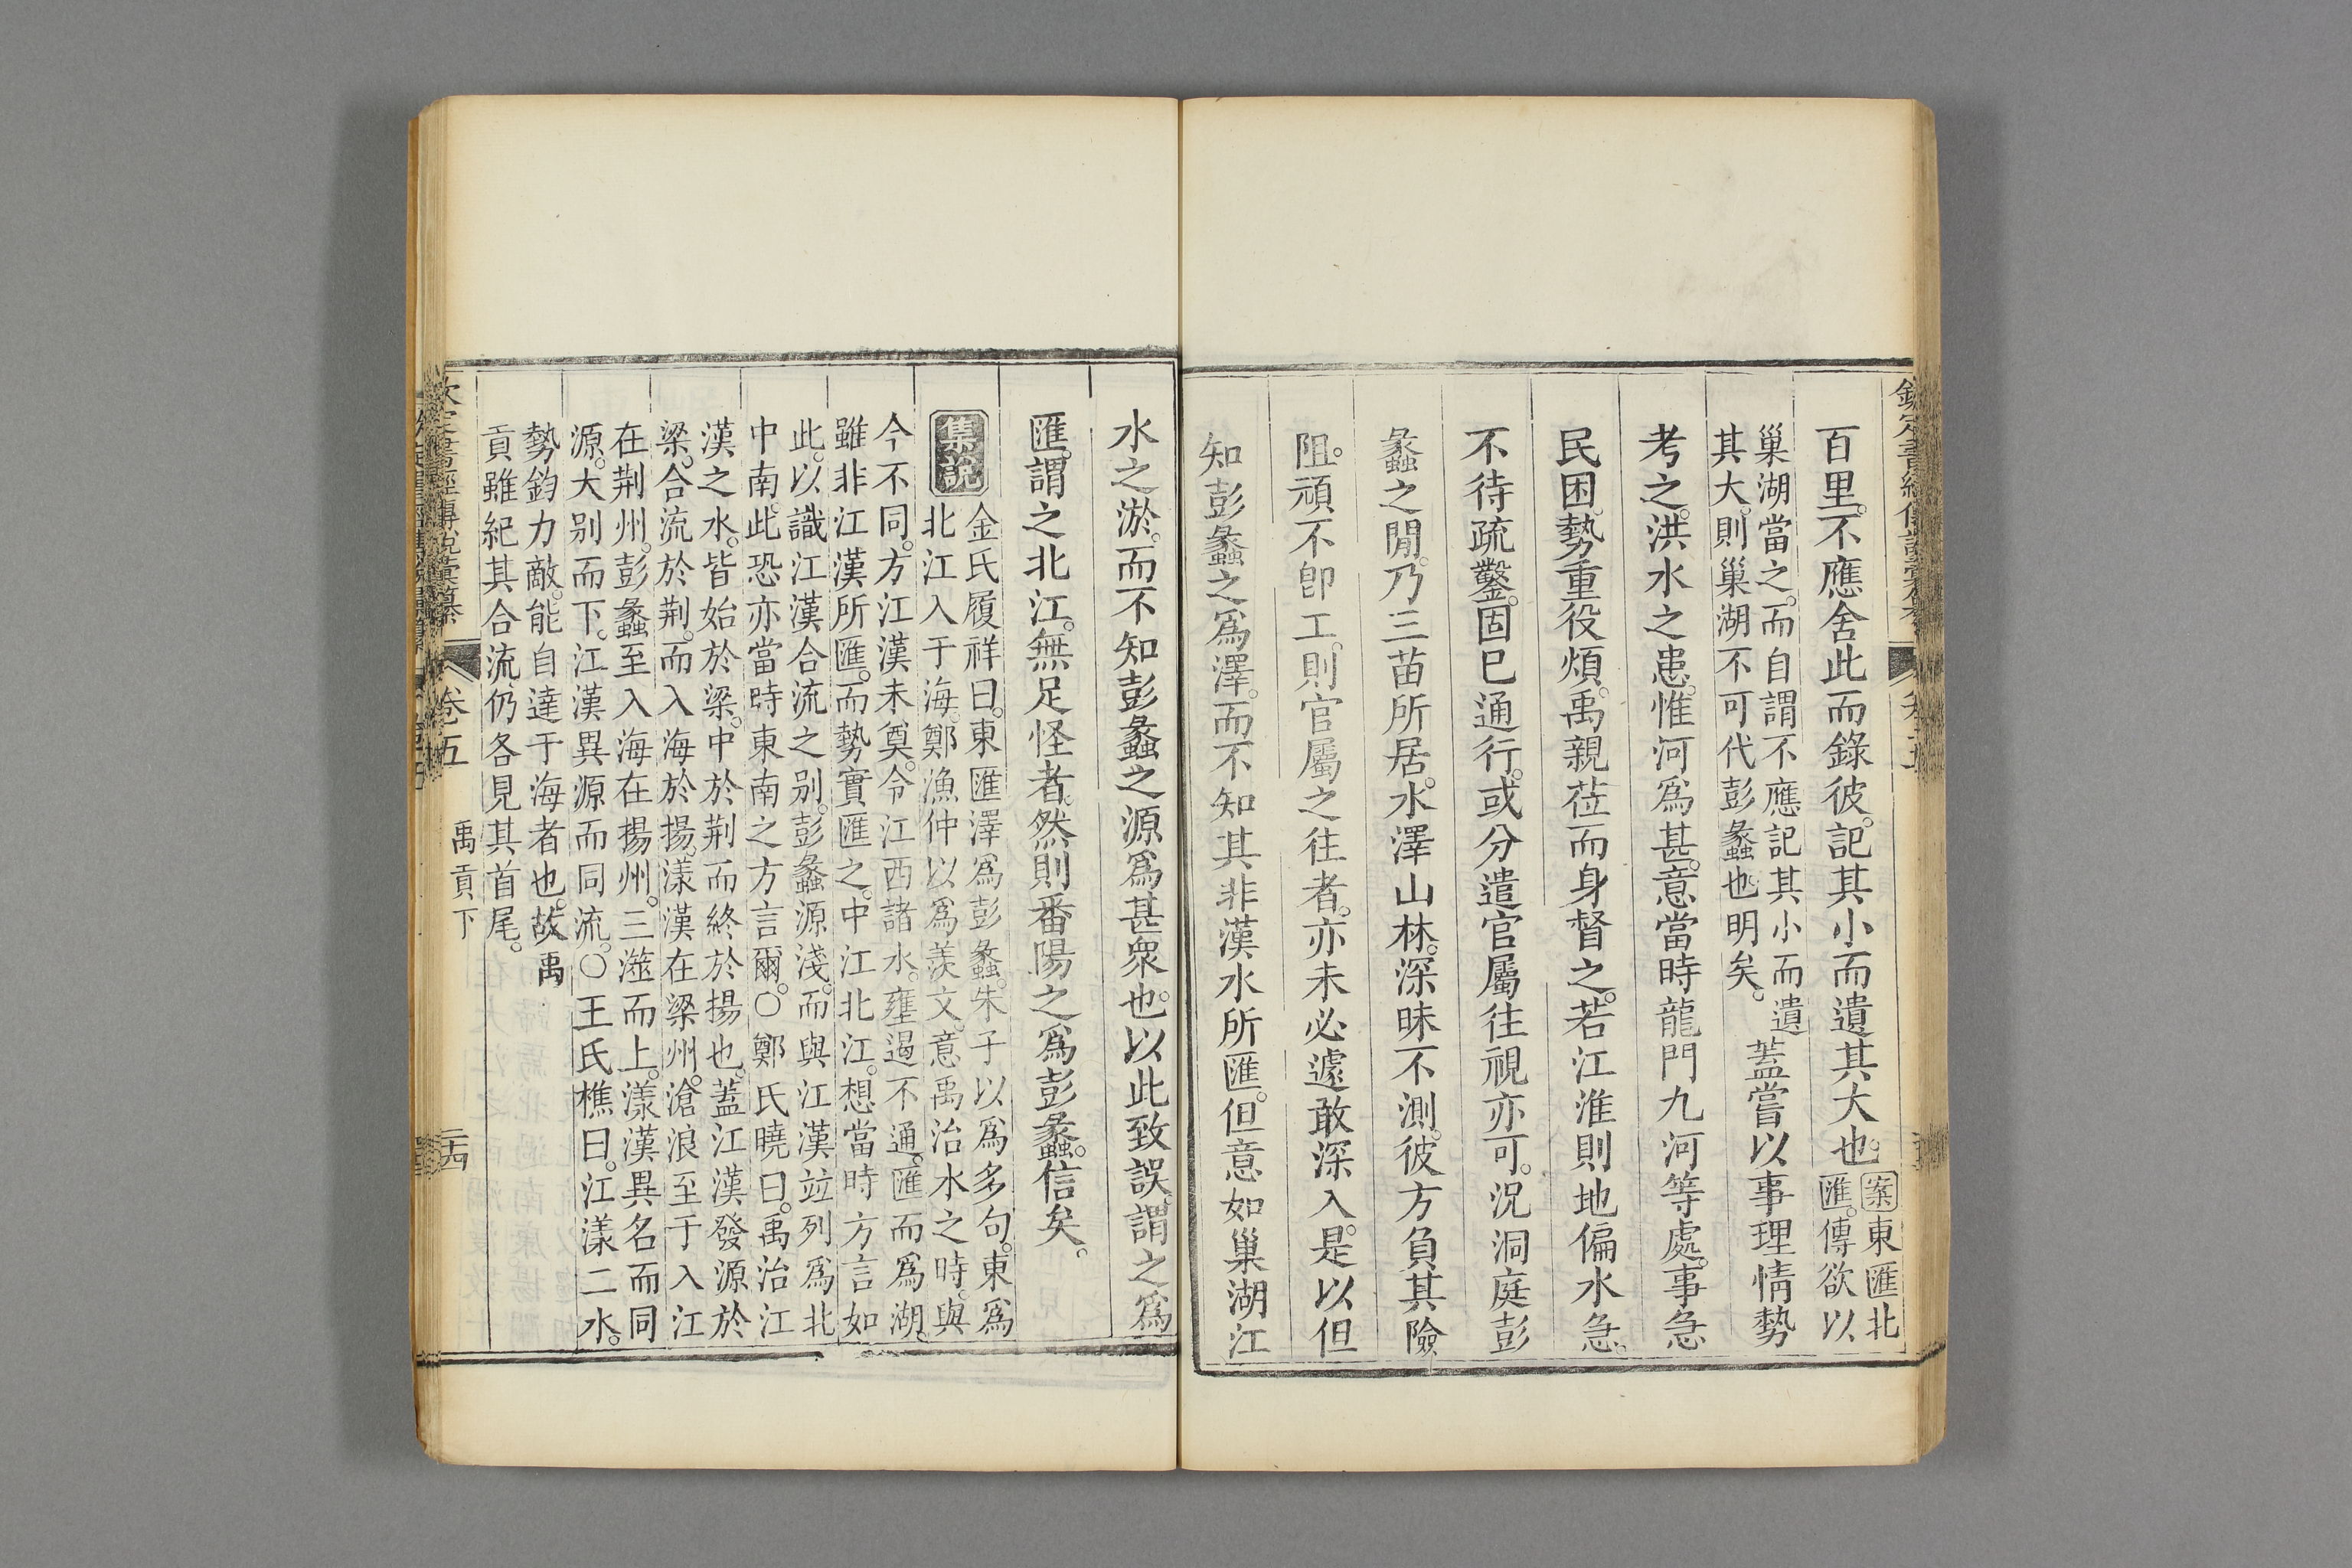 百里。不應舍此而錄彼。記其小而遺其大也。案東匯北
匯。傳欲以
巢湖當之。而自謂不應記其小而遺
其大。則巢湖不可代彭蠡也明矣。
蓋嘗以事理情勢
考之。洪水之患。惟河爲甚。意當時龍門九河等處。事急
民困。勢重役煩。禹親莅而身督之。若江淮則地偏水急。
不待疏鑿。固已通行。或分遣官屬往視亦可。況洞庭彭
蠡之閒。乃三苗所居。水澤山林。深昧不測。彼方負其險
阻。頑不卽工。則官屬之往者。亦未必遽敢深入。是以但
知彭蠡之爲澤。而不知其非漢水所匯。但意如巢湖江
水之淤。而不知彭蠡之源爲甚衆也。以此致誤。謂之爲
匯。謂之北江。無足怪者。然則番陽之爲彭蠡。信矣。
集說
金氏履祥曰。東匯澤爲彭蠡。朱子以爲多句。東爲
北江入于海。鄭漁仲以爲羨文。意禹治水之時。與
今不同。方江漢未奠。今江西諸水。壅遏不通。匯而爲湖。
雖非江漢所匯。而勢實匯之。中江北江。想當時方言如
此。以識江漢合流之别。彭蠡源淺。而與江漢竝列爲北
中南。此恐亦當時東南之方言爾。○鄭氏曉曰。禹治江
漢之水。皆始於梁。中於荆而終於揚也。蓋江漢發源於
梁。合流於荆。而入海於揚。漾漢在梁州。滄浪至于入江
在荆州。彭蠡至入海在揚州。三澨而上。漾漢異名而同
源。大别而下。江漢異源而同流。○王氏樵曰。江漾二水。
勢鈞力敵。能自達于海者也。故禹
貢雖紀其合流。仍各見其首尾。
欽定書經傳說彙纂
卷五
禹貢下
三十四